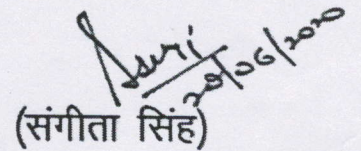 29/06/2020
(संगीता सिंह)